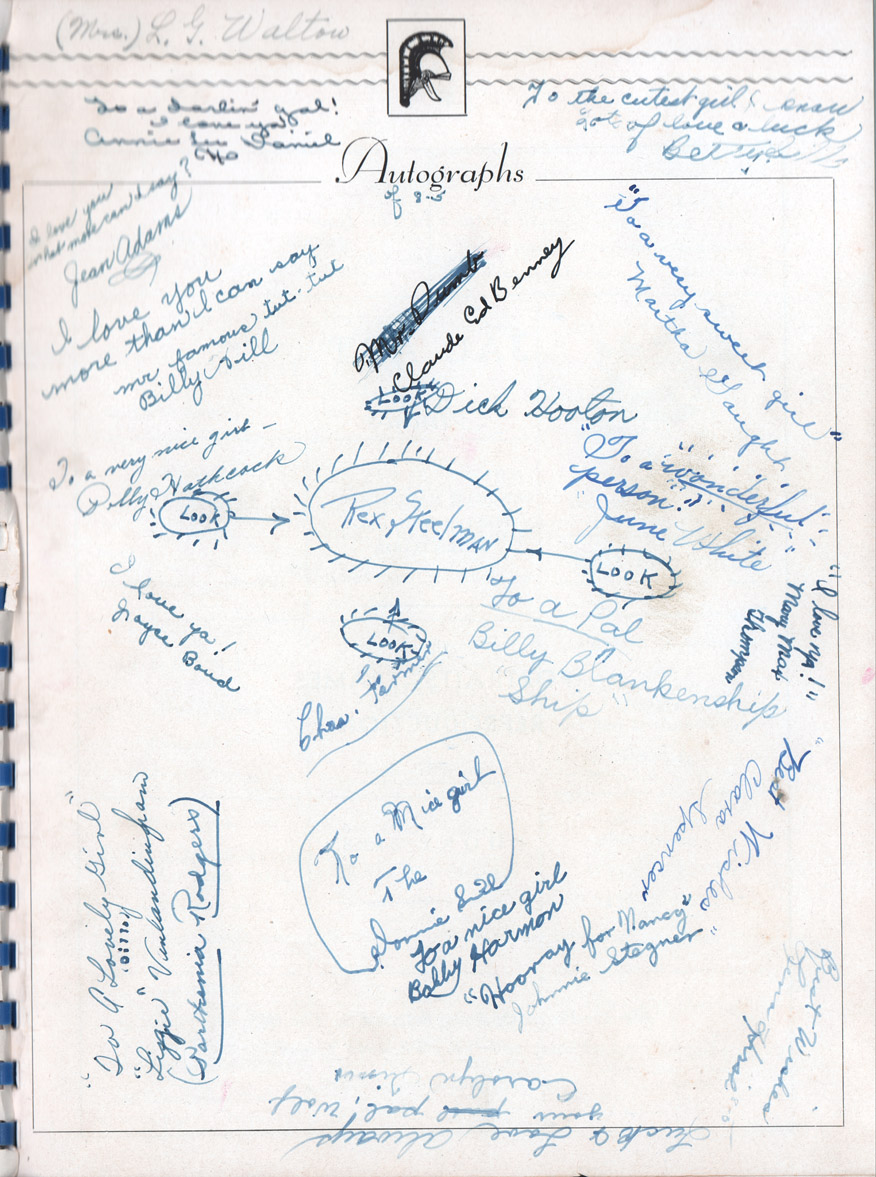 (Mrs.) L. G. Walton
To a darlin' gal!
I love ya
Annie Lu Daniel
To the cutest girl I know
lots of love & luck
Betty
Autographs
of 8-5
I love you
what more can I say?
Jean Adams
I love you
more than I can say
mr famous tut-tut
Billy Hill
Mr. Dumb
Claude Ed Benney
"To a very sweet girl"
Martha Gaught
LOOK
Dick Hooton
To a very nice girl-
Billy Hathcock
LOOK
Rex Skelman
"To a wonderful
person"
June White
LOOK
To a Pal
Billy Blankenship
"Ship"
"I love ya!"
Mary Mac
Thompson
I love ya!
Joyce Bond
LOOK
Chas. Farmer
"Best Wishes
Clara
Spencer
To a Nice girl
The
Donnie
To a nice girl
Bobby Harmon
"Hooray for Nancy"
Johnnie Stegner"
"To A Lovely Girl"
Ditto
"Lizzie" Vanlandingham
(Parthenia Rodgers)
Best Wishes
Luck & Love Always
your pal, Wolf
Carolyn